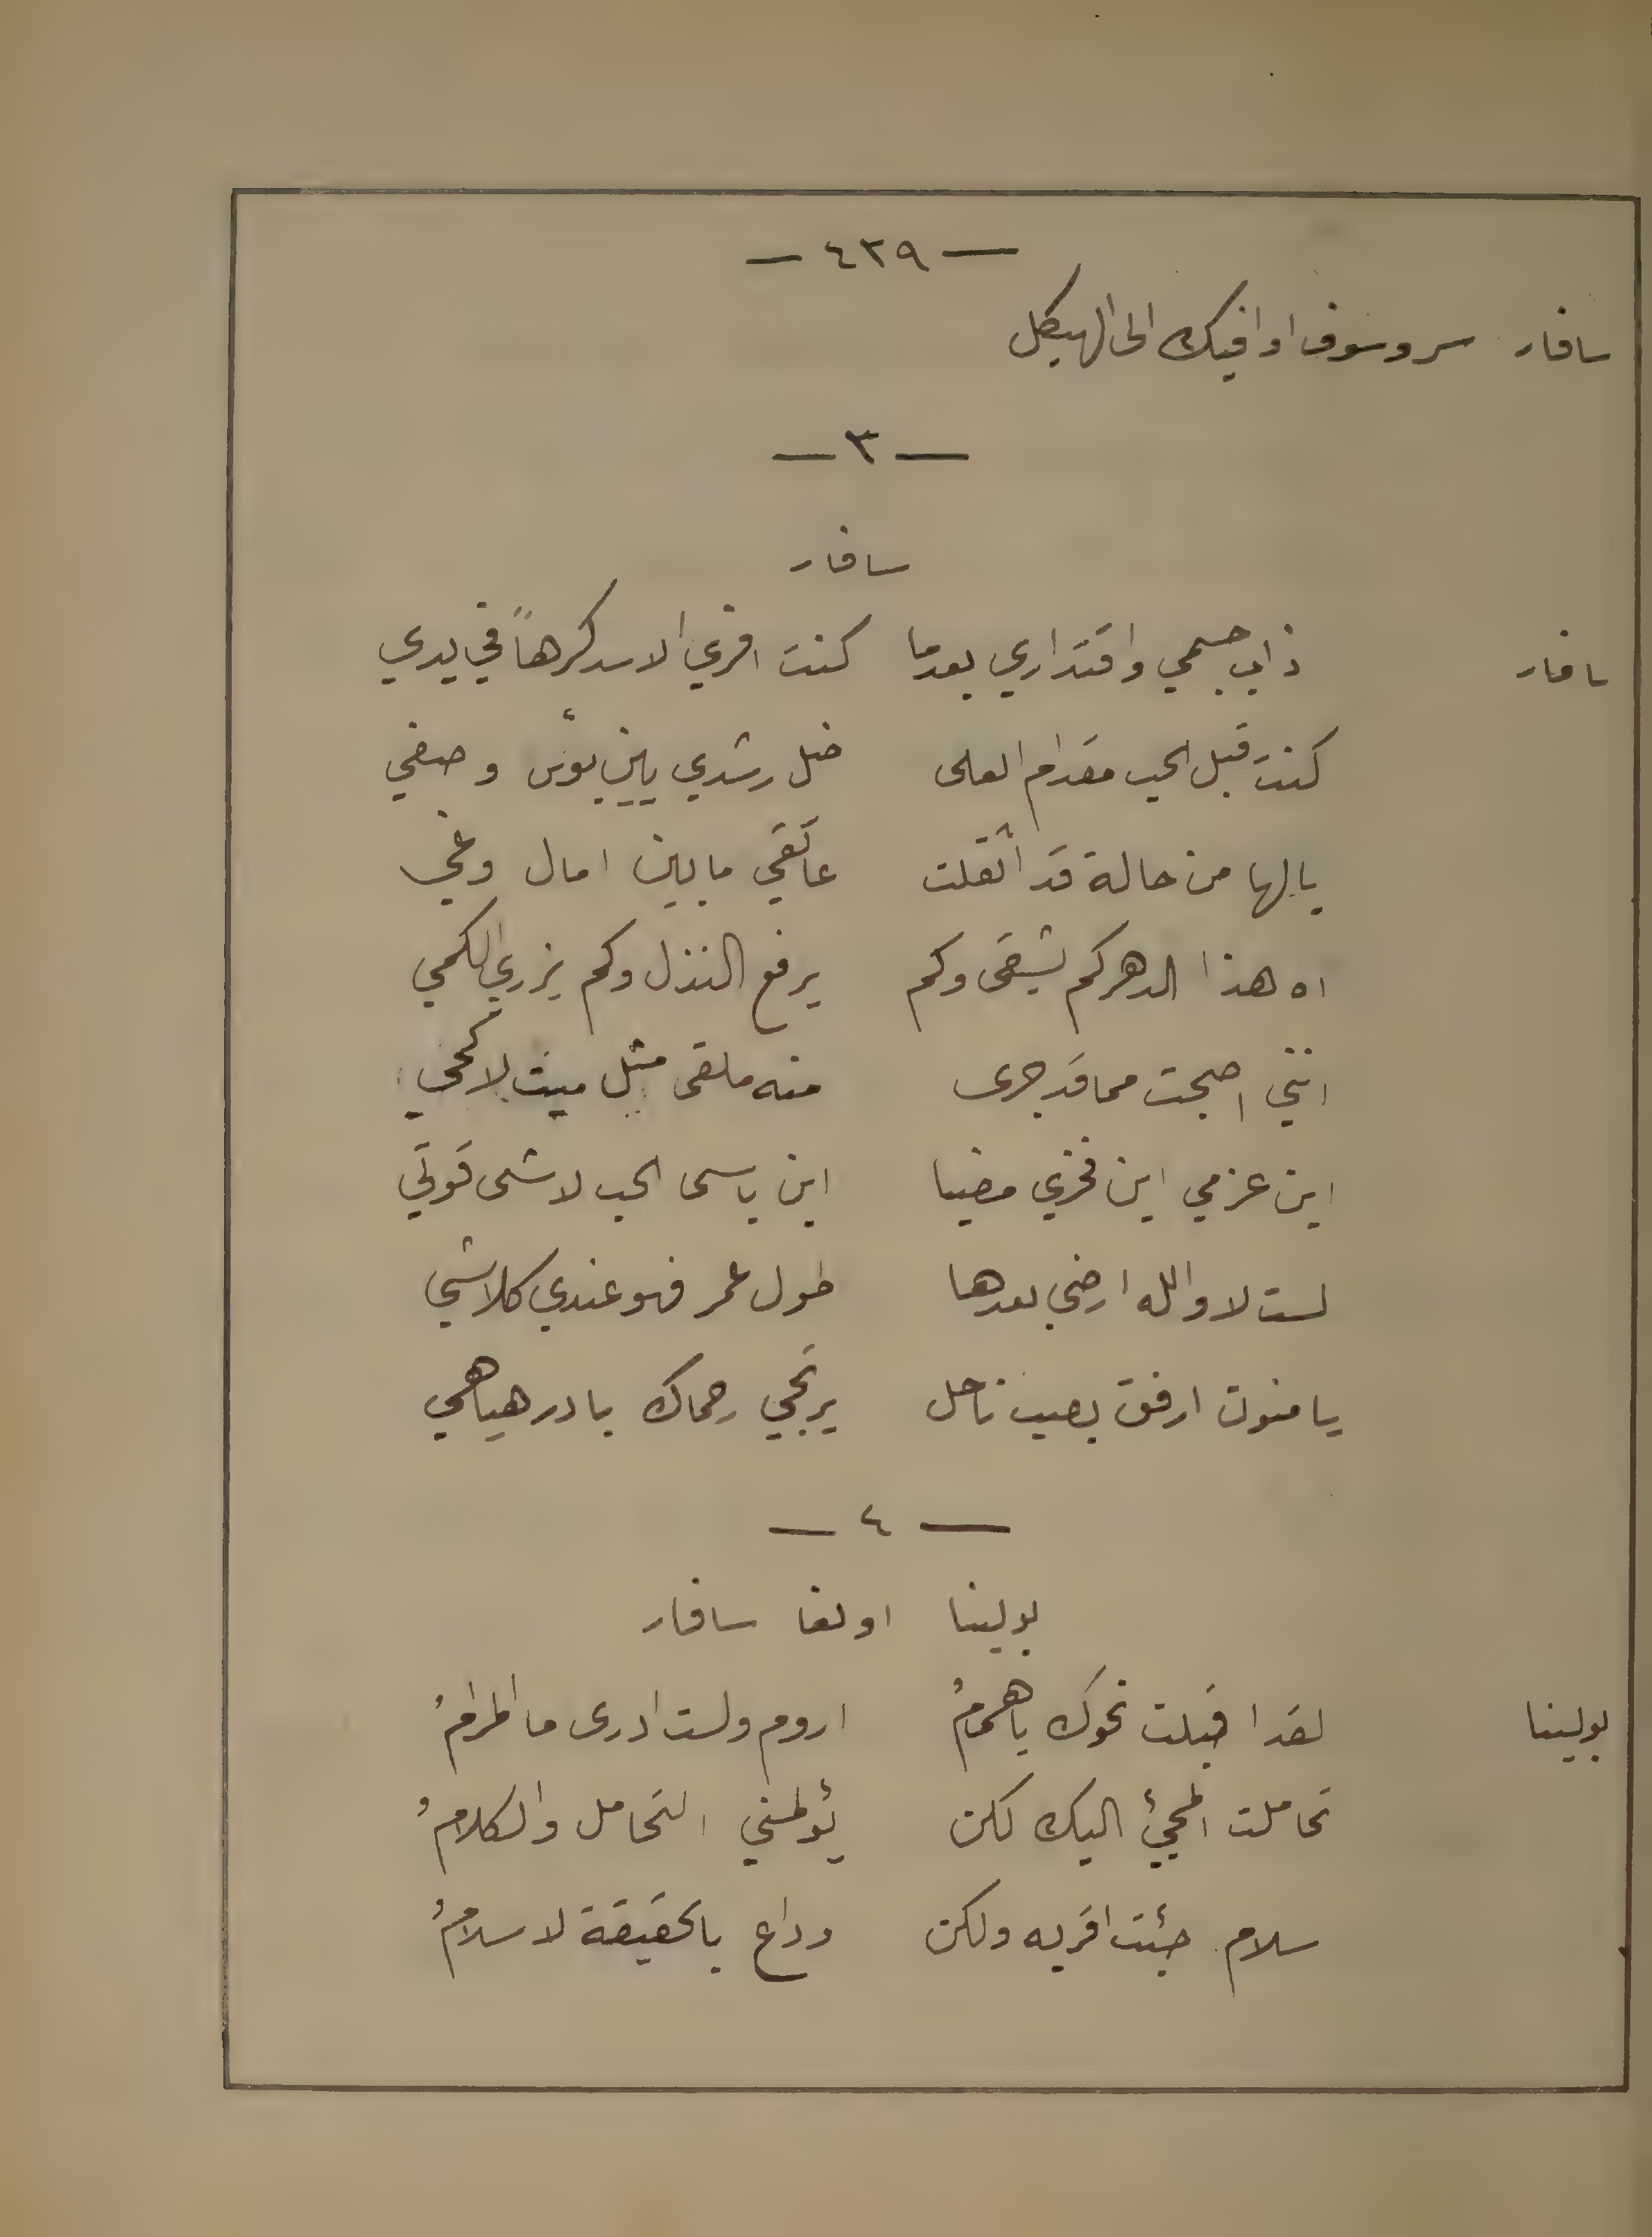 — ٤٣٩ —
سافار سر وسوف اوافيك الى الهيكل
— ٣ —
سافار
سافار ذاب جسمي واقتداري بعدما كنت افري الاسد كرهاً في يدي
كنت قبل الحب مقدام العلى ضل رشدي بين بؤس و
يالها من حالة قد أثقلت عاتقي ما بين امال وغي
اه هذا الدهر كم يشقى وكم يرفع النذل وكم يزري الكمي
انني اصبحت مما قد جرى منه ملقى مثل ميت لا كحي
اين عزمي اين فخري مضيا اين باسى الحب لاشى قوتي
لست لا والله ارضى بعدها طول عمر فهو عندي كلاشي
يا منون ارفق بصب ناحل يرتجي رحماك بادر هيا هي
— ٤ —
بولينا اولغا سافار
بولينا لقد اقبلت نحوك ياهمامُ اروم ولست ادرى ما المرامُ
تحاملت المجئ اليك لكن يؤلمني التحامل والكلامُ
سلام جئت اقريه ولكن وداع بالحقيقة لا سلامُ